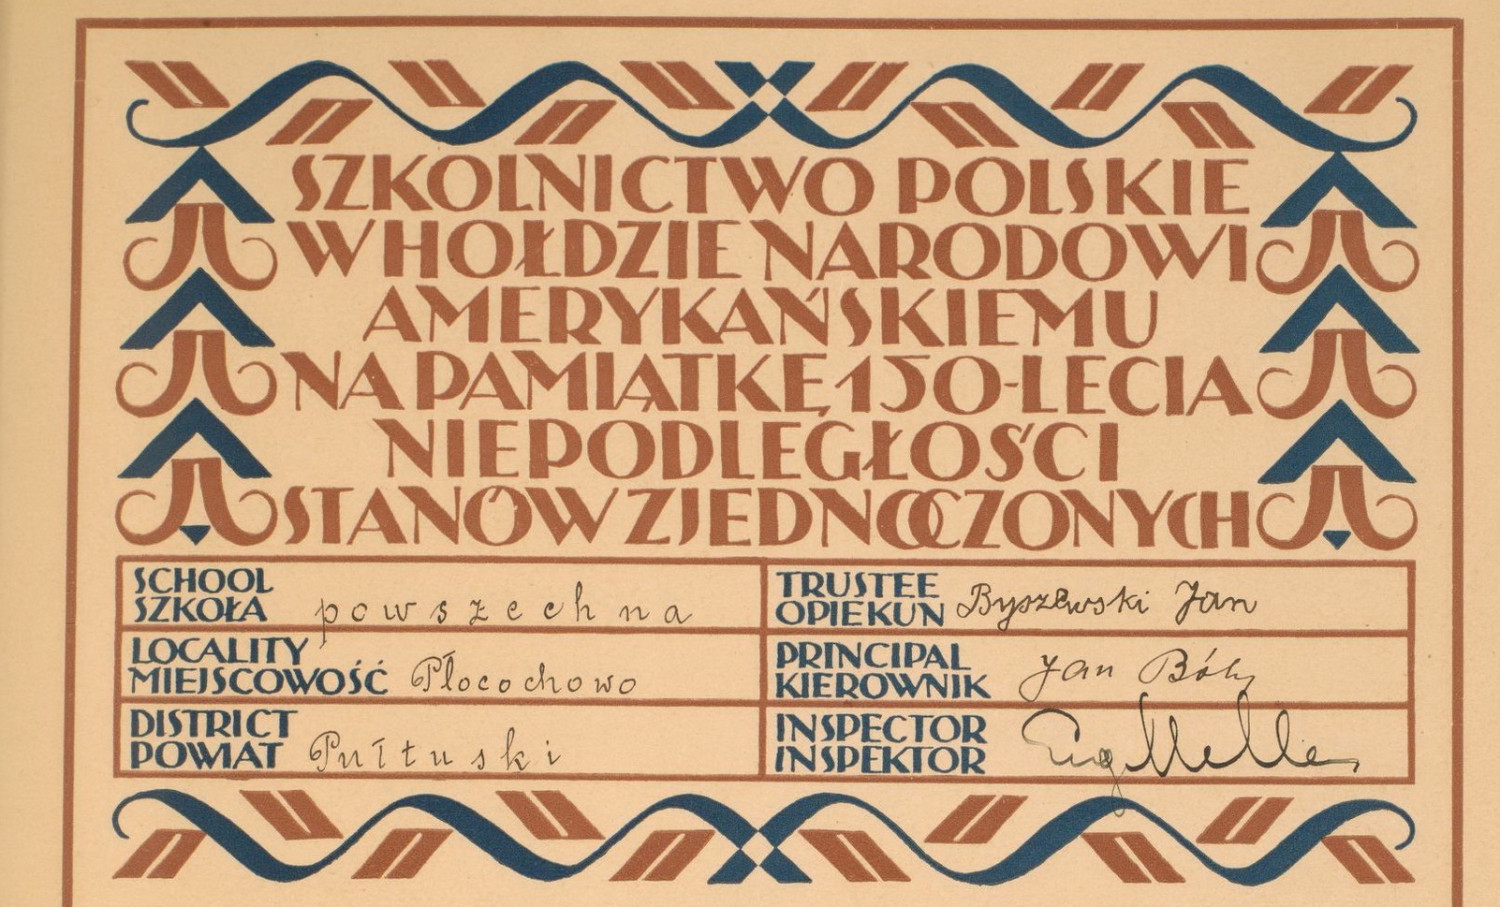 SZKOLNICTWO POLSKIE
W HOŁDZIE NARODOWI
AMERYKAŃSKIEMU
NA PAMIĄTKĘ 150-LECIA
NIEPODLEGŁOŚCI
STANÓW ZJEDNOCZONYCH
SCHOOL
SZKOŁA powszechna
LOCALITY
MIEJSCOWOŚĆ Płocochowo
DISTRICT
POWIAT Pułtuski
TRUSTEE
OPIEKUN Byszewski Jan
PRINCIPAL
KIEROWNIK Jan
INSPECTOR
INSPEKTOR